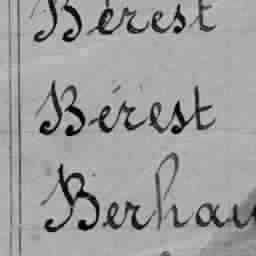 Bérest
Bérest
Berhau